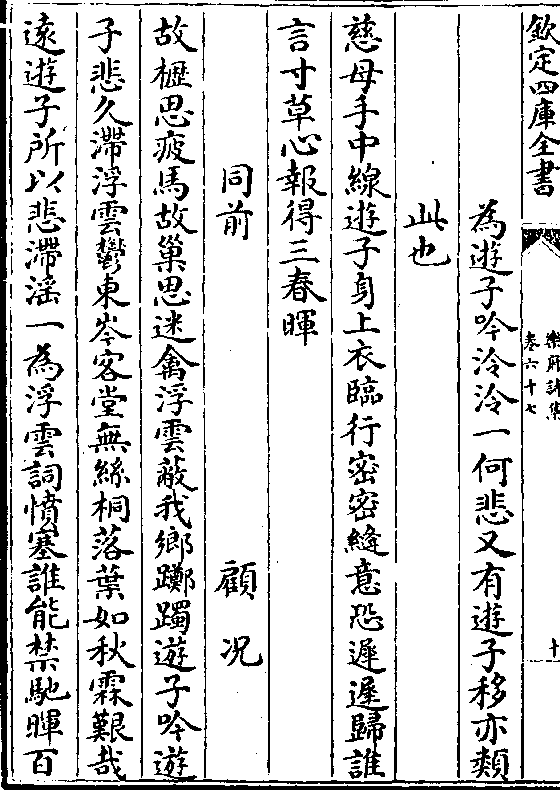 欽定四庫全書
樂府詩集
卷六十七
十
為遊子吟泠泠一何悲又有遊子移亦類
此也
慈母手中線遊子身上衣臨行密密縫意恐遲遲歸誰
言寸草心報得三春暉
同前 顧況
故櫪思疲馬故巢思迷禽浮雲蔽我鄉躑躅遊子吟遊
子悲久滯浮雲鬱東岑客堂無絲桐落葉如秋霖艱哉
遠遊子所以悲滯淫一為浮雲詞憤塞誰能禁馳暉百